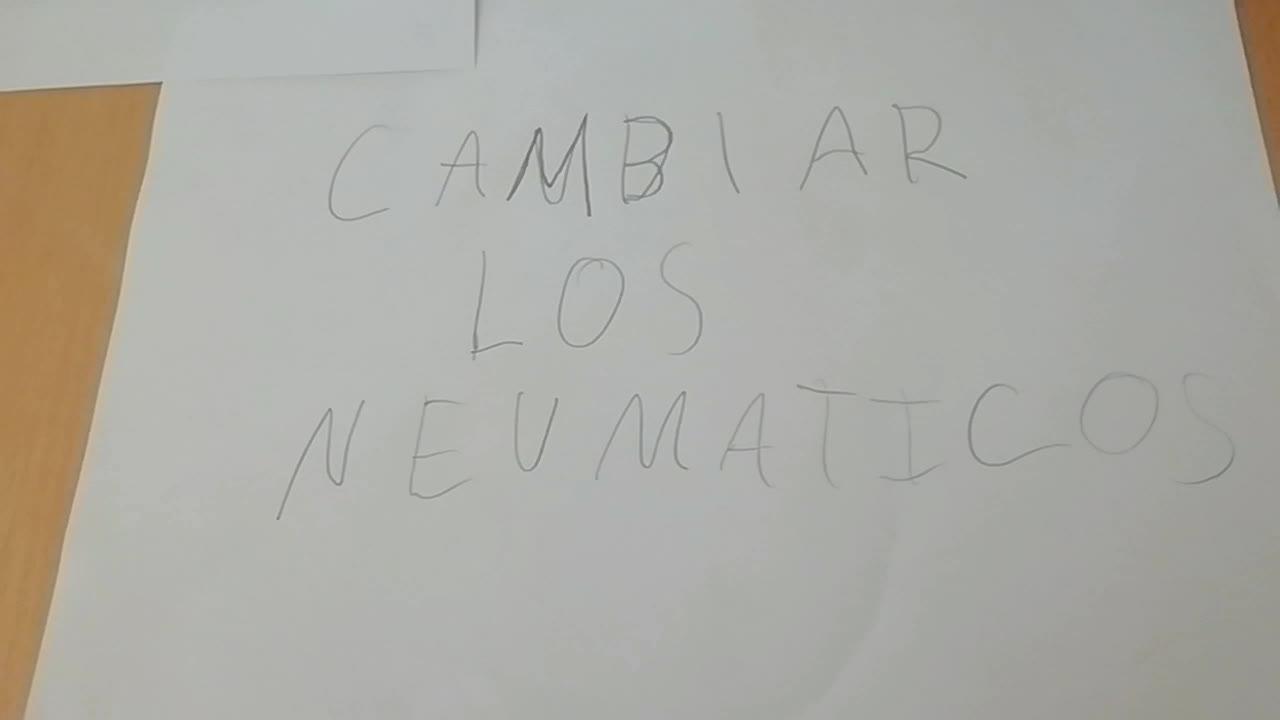 CAMBIAR
LOS
NEUMATICOS